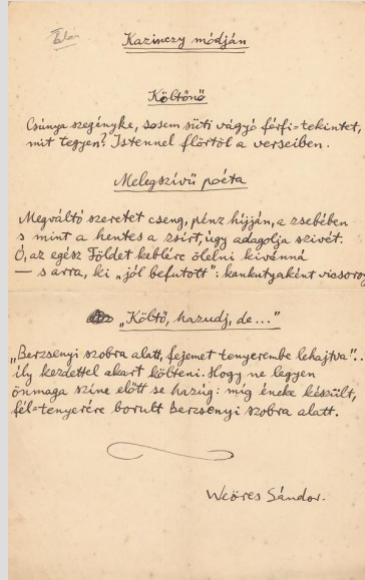 Kazinczy módján
Költőnő
Csúnya szegényke, sosem süti vágyó férfi-tekintet,
mit tegyen? Istennel flörtöl a verseiben.
Melegszívű poéta
Megváltó szeretet cseng, pénz híjján, a zsebében
s mint a hentes a zsírt, úgy adagolja szivét.
Ó, az egész Földet keblére ölelni kivánná
— s arra, ki „jól befutott”: kankutyaként vicsorog
„Költő, hazudj, de...”
„Berzsenyi szobra alatt, fejemet tenyerembe lehajtva”..
ily kezdettel akart költeni. Hogy ne legyen
önmaga színe előtt se hazúg: míg éneke készült,
fél-tenyerére borult Berzsenyi szobra alatt.
Weöres Sándor.